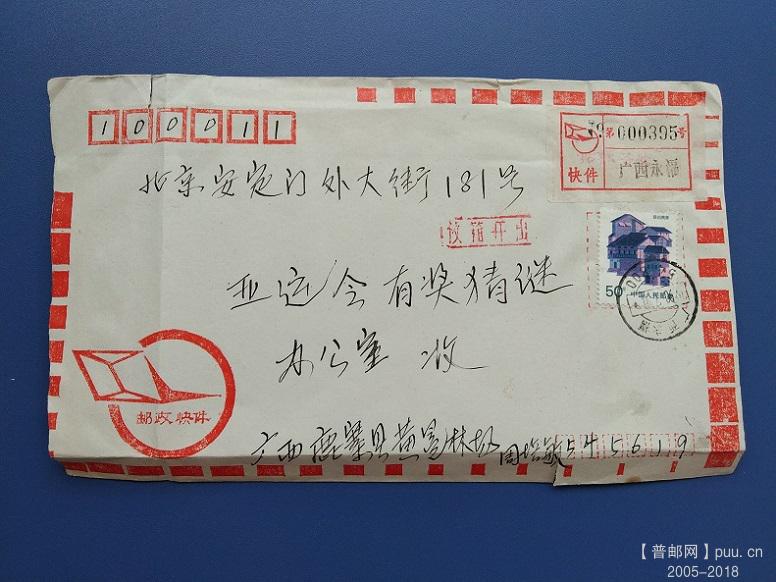 100011
第000395号
快件
广西永福
北京安定门外大街181号
投箱开出
50
中国人民邮政
亚运会有奖猜谜
办公室 收
邮政快件
广西鹿寨县黄冕林场
545619
【普邮网】puu.cn
2005-2018